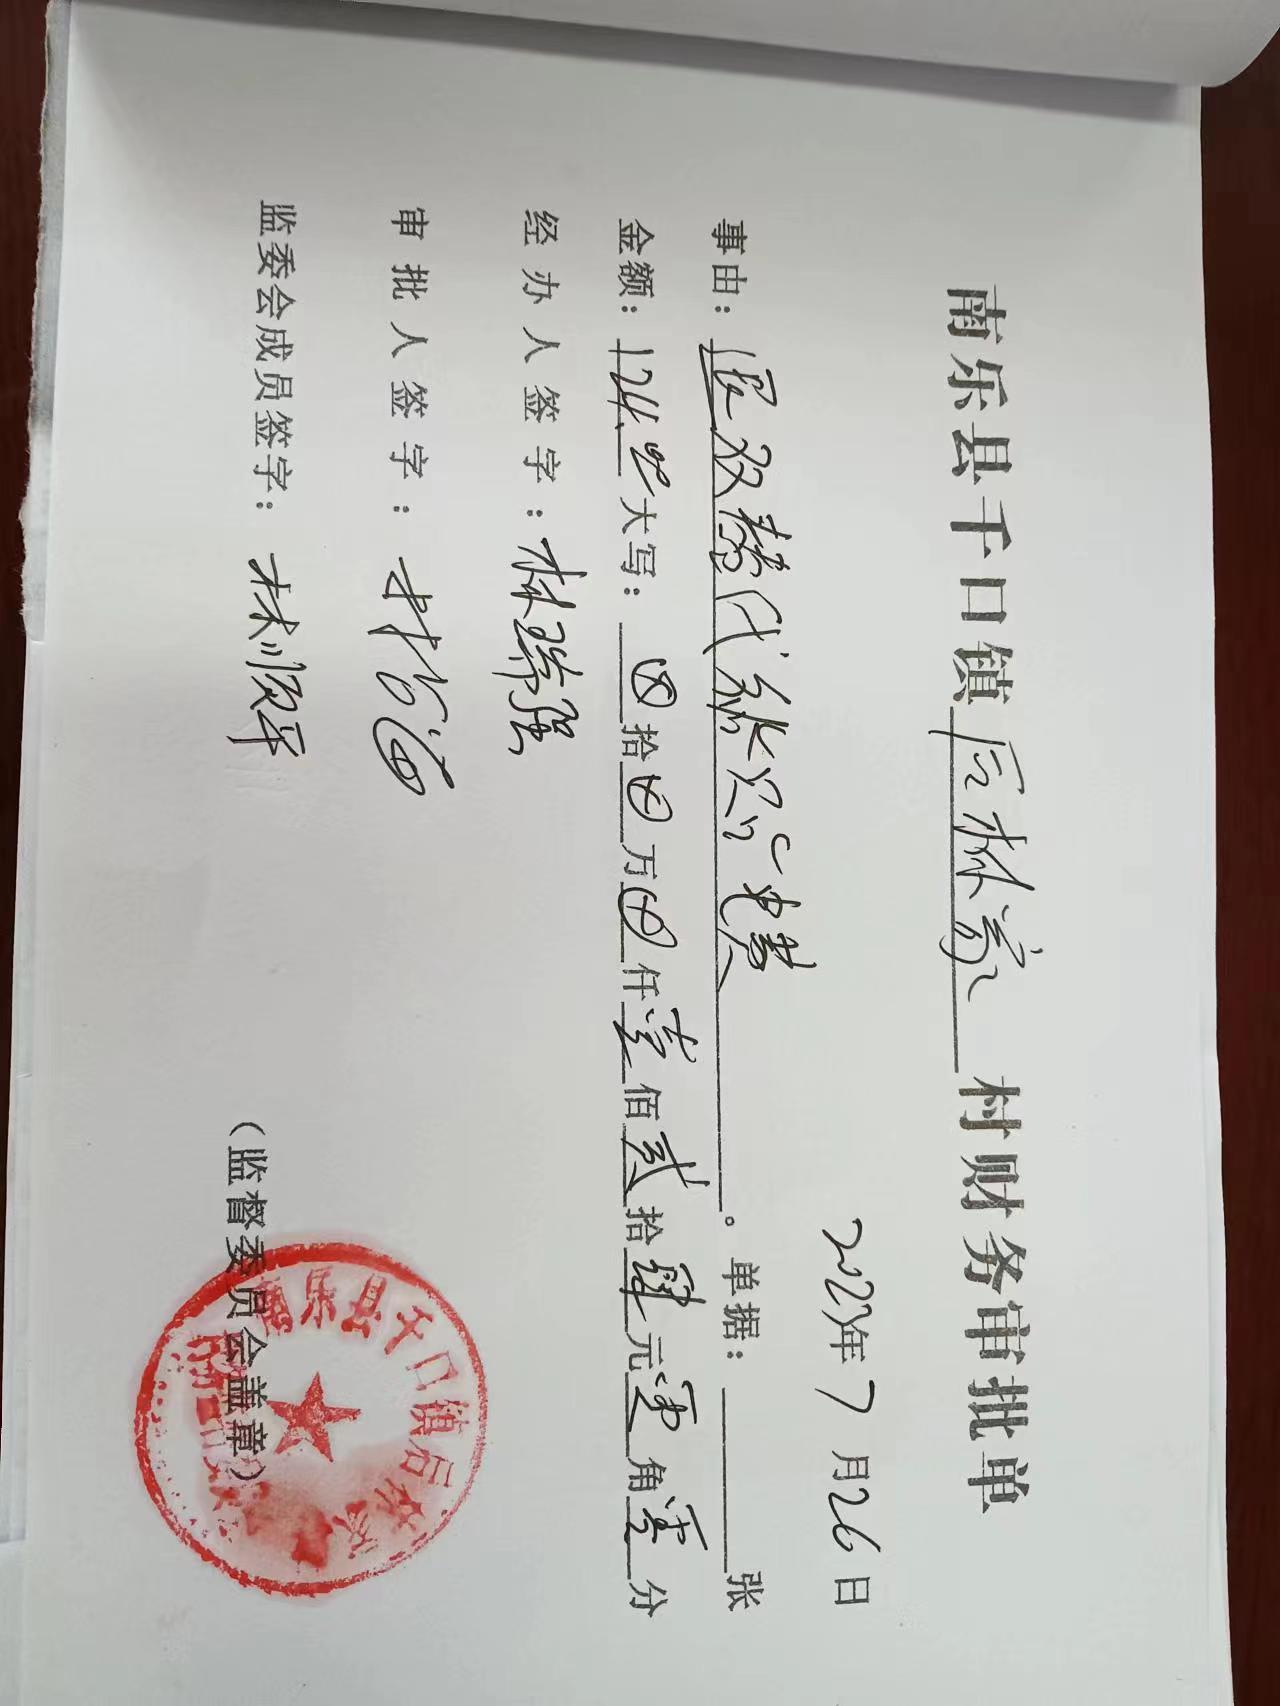 南乐县千口镇后林家村财务审批单
2023年7月26日
事由：退双替代张贮电费。单据：张
金额：124.00大写：⊗拾⊗万⊗仟壹佰贰拾肆元零角零分
经办人签字：林瑞强
审批人签字：
监委会成员签字：林顺平
（监督委员会盖章）
南乐县千口镇后林家